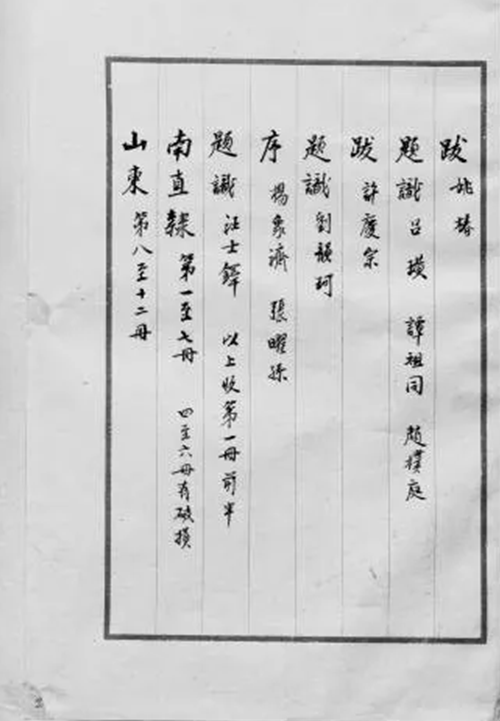 跋 姚椿
題識 呂璜 譚祖同 趙樸庭
跋 許慶宗
題識 劉韻珂
序 楊象濟 張曜孫
題識 汪士鐸 以上收第一冊前半
南直隸 第一至七冊 四至六冊有破損
山東 第八至十二冊